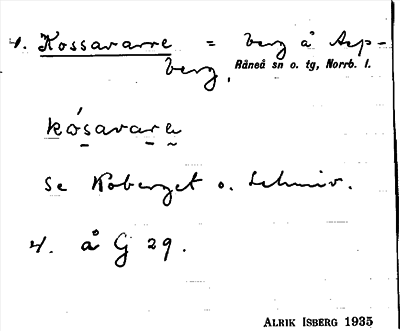 4. Kossavarre = berg å Asp-
berg, Råneå sn o. tg, Norrb. l.
kósavara
se Koberget o.
4. å G 29.
ALRIK ISBERG 1935